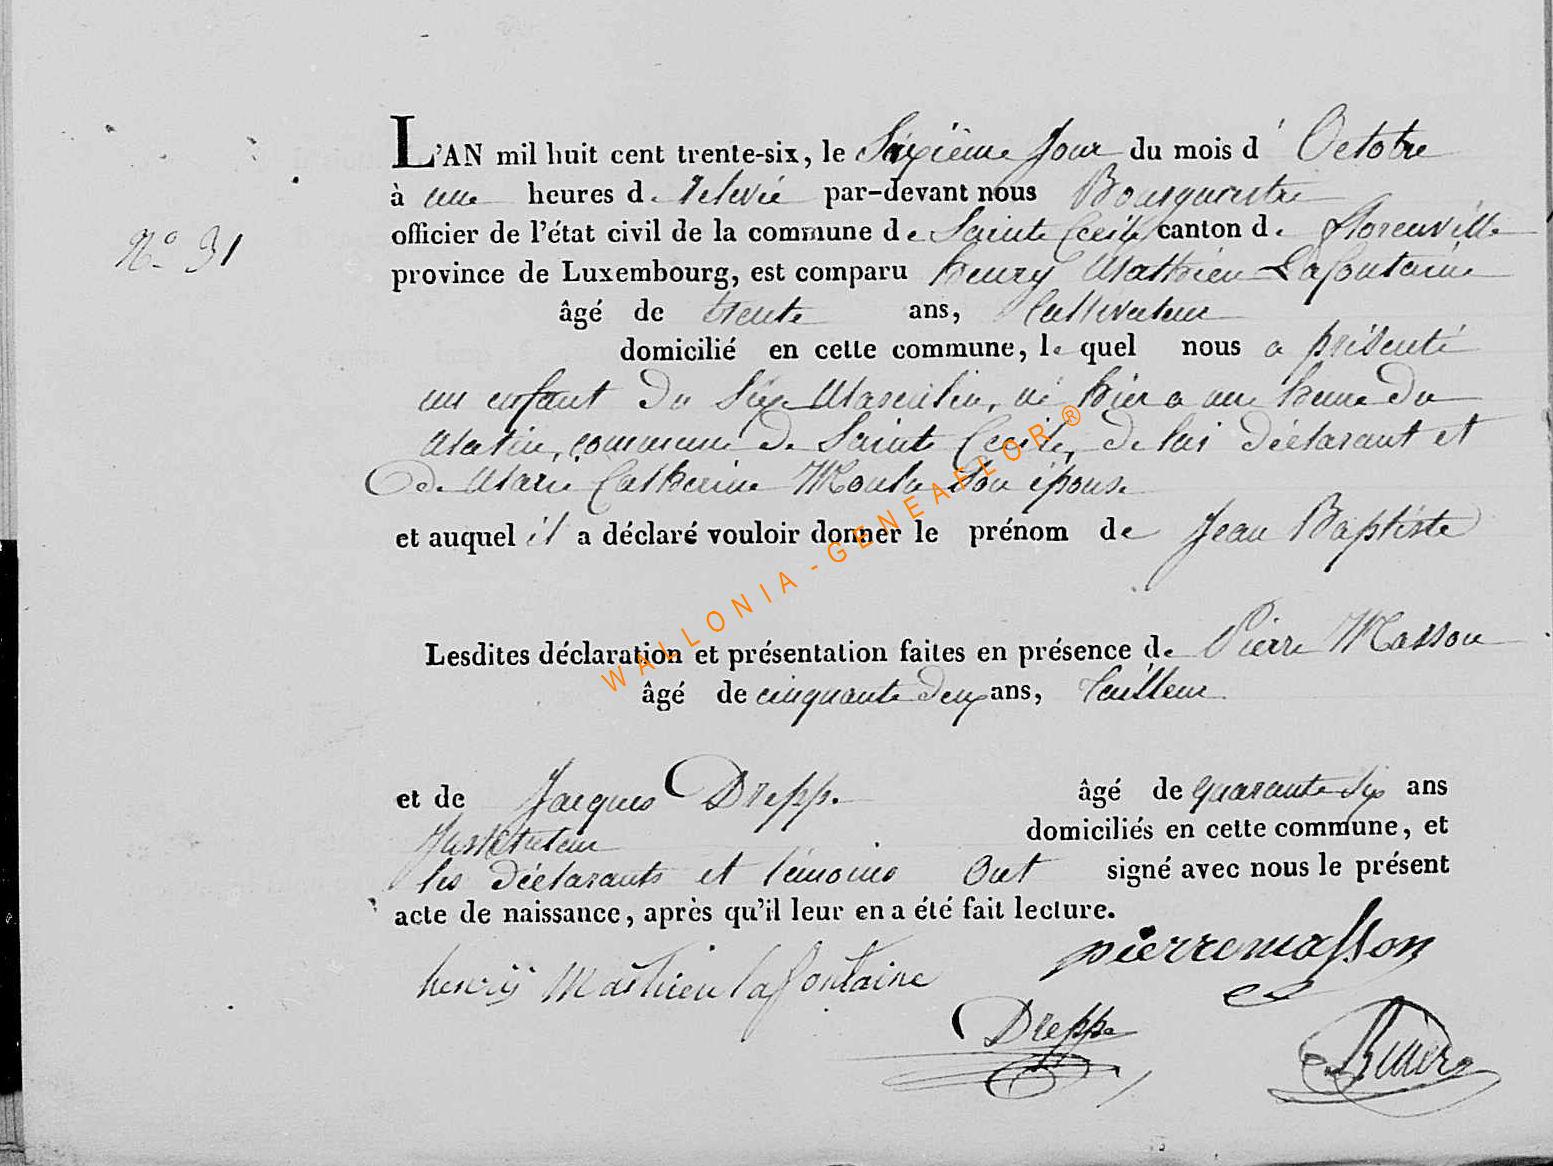 L'AN mil huit cent trente-six, le Sixième Jour du mois d' Octobre
à une heures de relevé par-devant nous
officier de l'état civil de la commune de Sainte Cecile canton de florenville
N° 31
province de Luxembourg, est comparu henry Mathieu Lafontaine
âgé de trente ans, Cultivateur
domicilié en cette commune, le quel nous a présenté
un enfant du Sexe Masculin, né hier a une heure du
Matin, commune de Sainte Cecile, de lui déclarant et
de Marie Catherine Son épouse
et auquel il a déclaré vouloir donner le prénom de Jean Baptiste
Lesdites déclaration et présentation faites en présence de Pierre Masson
âgé de cinquante deux ans, tailleur
et de Jacques Drepp. âgé de quarante Six ans
Instituteur domiciliés en cette commune, et
les déclarants et témoins Ont signé avec nous le présent
acte de naissance, après qu'il leur en a été fait lecture.
pierre masson
henrÿ Mathieu lafontaine
Dreppe
WALLONIA - GENEAFLOR ®